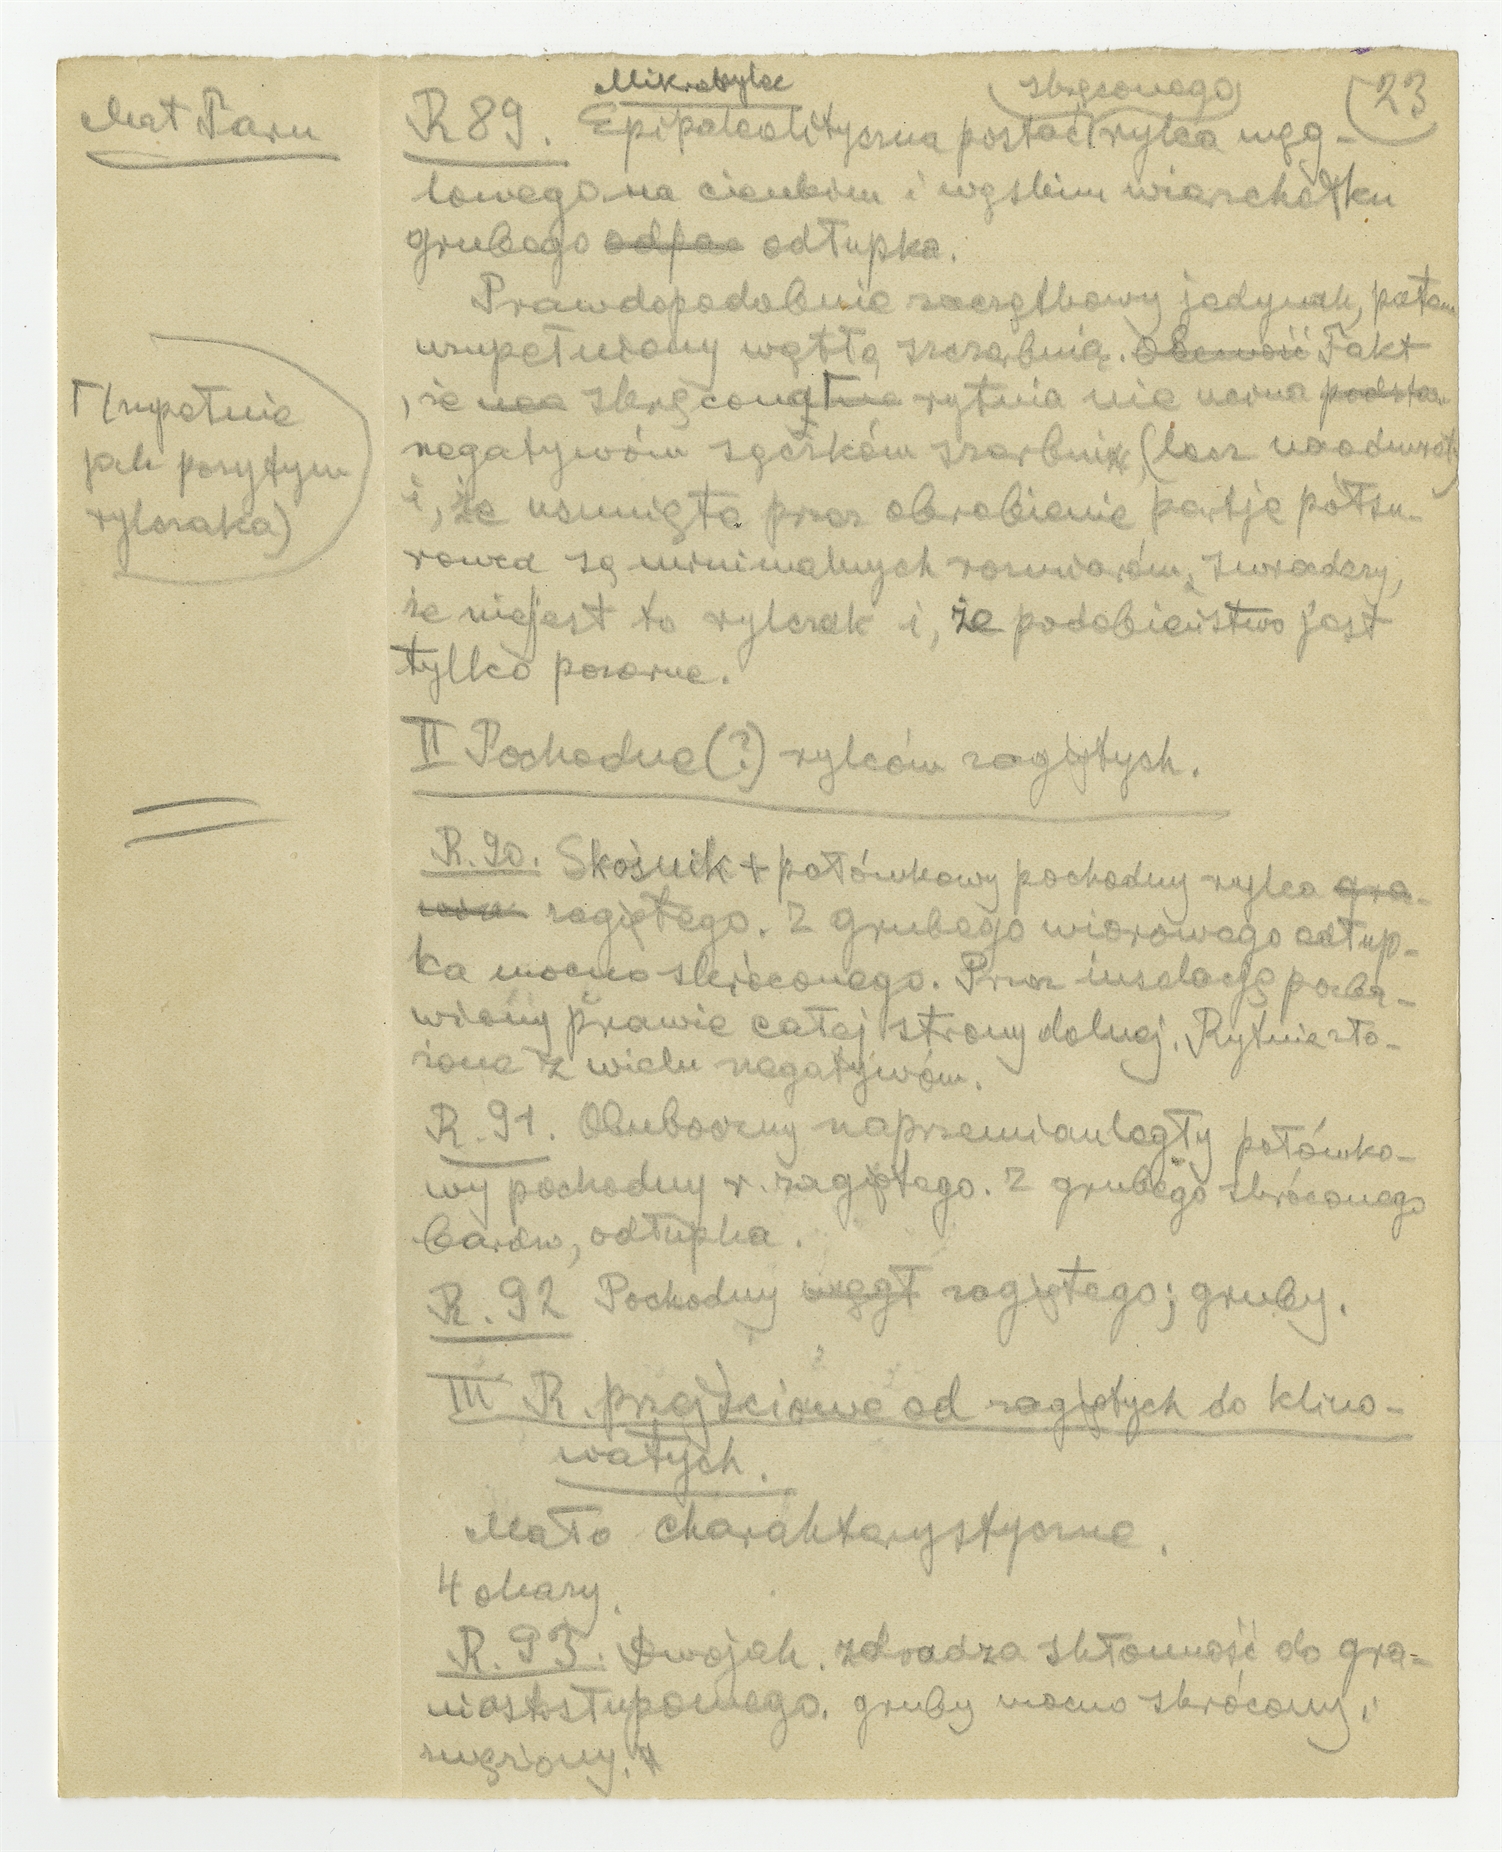 Mat Paru
23
Mikrorylec
skręconego
R 89. Epipaleolityczna postać rylca węg-
łowego na cienkim i wąskim wierzchołku
grubego odpac odłupka.
Prawdopodobnie zaczątkowy jedynak, potem
uzupełniony węgłą szczerbnią. Obecność Fakt
, że na skręcong rytnia nie ucina podsta
negatywów sęczków szczerbni, (lecz naodwrót)
Γ(zupełnie
jak pozytyw
rylczaka)
i, że usunięte przez obrabianie partje półsu-
rowca są minimalnych rozmiarów, świadczy,
że niejest to rylczak i, że podobieństwo jest
tylko pozorne.
II Pochodne(?) rylców zagiętych.
R. 90. Skośnik + połówkowy pochodny rylca gra-
zagiętego. Z grubego wiórowego odłup-
ka mocno skróconego. Przez insolację pozba-
wiony prawie całej strony dolnej. Rytnie zło-
żone z wielu negatywów.
R. 91. Obuboczny naprzemianległy połówko-
wy pochodny r. zagiętego. Z grubego skróconego
bardzo, odłupka.
R. 92 Pochodny węgł zagiętego; gruby.
III R. przejściowe od zagiętych do klino-
watych.
Mało charakterystyczne.
4 okazy.
R. 93. Dwojak. zdradza skłonność do gra-
niastosłupowego. gruby mocno skrócony i
zwężony.